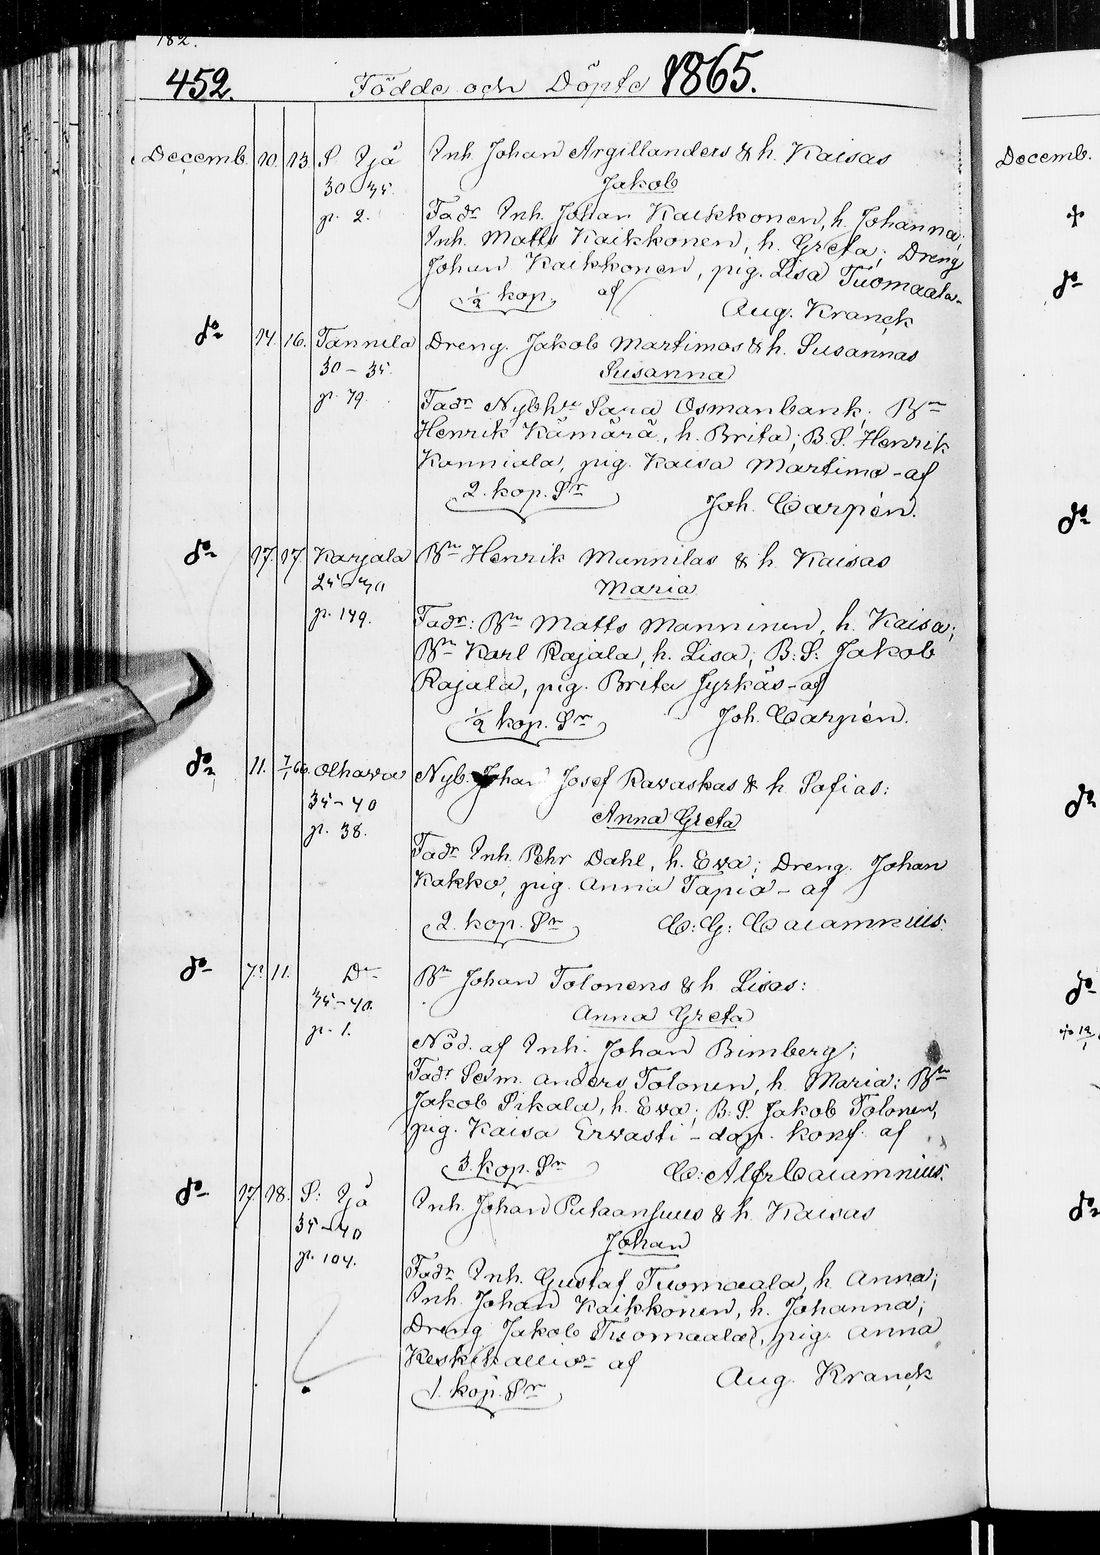 182.
452. Födde och Döpte 1865.
Decemb. 10. 13. S. Ijå Inh. Johan Argillanders & h. Kaisas
30–35. Jakob
p. 2. Fadr Inh. Johan Kaikkonen, h. Johanna;
Inh. Matts Kaikkonen, h. Greta; Dreng
Johan Kaikkonen, pig. Lisa Tuomaala-
½ kop. af
Aug. Kranck
do 14. 16. Tannila Dreng. Jakob Martimos & h. Susannas
30–35. Susanna
p. 79. Fadr Nybhu Sara Osmanbank; Bn
Henrik Kämärä, h. Brita; B. S. Henrik
Kanniala, pig. Kaisa Martimo – af
2. kop. Sr Joh. Carpén.
do 17. 17. Karjala Bn Henrik Mannilas & h. Kaisas
25–30 Maria
p. 149. Fadr: Bn Matts Manninen, h. Kaisa;
Bn Karl Rajala, h. Lisa; B: S: Jakob
Rajala, pig. Brita Jyrkäs – af
½ kop. Sr Joh. Carpén.
do 11. 7/1 66. Olhava Nyb. Johan Josef Ravaskas & h. Sofias:
35–40 Anna Greta
p. 38. Fadr Inh. Pehr Dahl, h. Eva; Dreng. Johan
Kakko, pig. Anna Tapio – af
2. kop. Sr C: G: Calamnius.
do 7. 11. Do Bn Johan Tolonens & h. Lisas:
35–40. Anna Greta
p. 1. Nöd. af Inh. Johan Bimberg;
Fadr Sexm. Anders Tolonen, h. Maria; Bn
Jakob Pikala, h. Eva; B. S. Jakob Tolonen,
pig. Kaisa Ervasti – dop. konf. af
3. kop. Sr C: Alfr Calamnius.
do 17. 18. S: Ijå Inh. Johan Putaansuus & h. Kaisas
35–40 Johan
p. 104. Fadr Inh. Gustaf Tuomaala, h Anna;
Inh. Johan Kaikkonen, h. Johanna;
Dreng Jakob Tuomaala, pig. Anna
Keskitallio – af
1. kop. Sr Aug. Kranck
Decemb.
do
do
do
do
do